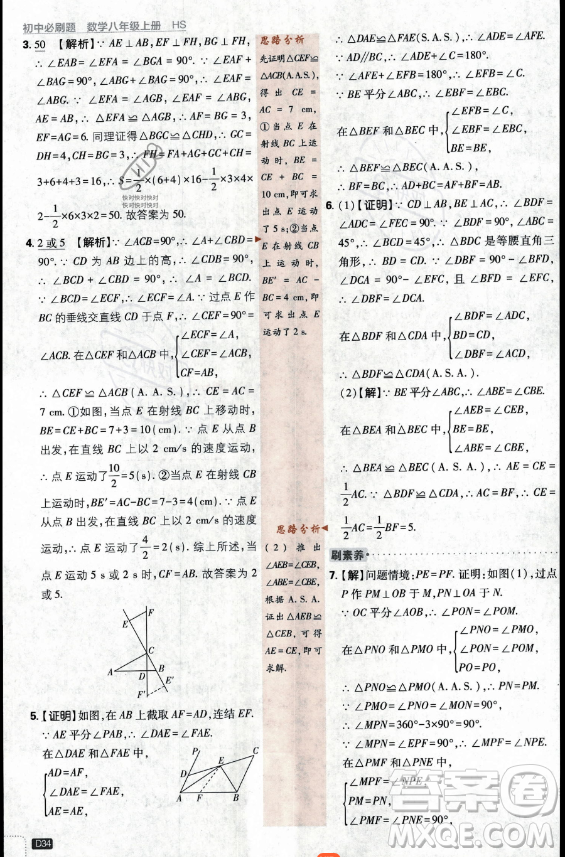 初中必刷题 数学八年级上册 HS
3. 50 【解析】∵ AE⊥AB, EF⊥FH, BG⊥AG,
∴ ∠EAB=∠EFA=∠BGA=90°. ∵ ∠EAF+
∠BAG=90°, ∠ABG+∠BAG=90°, ∴ ∠EAF=
∠ABG. ∵ ∠EFA=∠AGB, ∠EAF=∠ABG,
AE=AB, ∴ △EFA≌△AGB, ∴ AF=BG=3, AG=
EF=6. 同理证得△BGC≌△CHD, ∴ GC=
DH=4, CH=BG=3. ∴ FH=FA+AG+GC+CH=
3+6+4+3=16, ∴ S=1/2×(6+4)×16-1/2×3×4×
2-1/2×6×3×2=50. 故答案为 50.
4. 2 或 5 【解析】∵ ∠ACB=90°, ∴ ∠A+∠CBD=
90°. ∵ CD 为 AB 边上的高, ∴ ∠CDB=90°,
∴ ∠BCD+∠CBD=90°, ∴ ∠A=∠BCD.
∵ ∠BCD=∠ECF, ∴ ∠ECF=∠A. ∵ 过点 E 作
BC 的垂线交直线 CD 于点 F, ∴ ∠CEF=90°=
∠ACB. 在△CEF 和△ACB 中, {∠ECF=∠A,
∠CEF=∠ACB,
CF=AB,
∴ △CEF≌△ACB (A.A.S.), ∴ CE=AC=
7 cm. ①如图, 当点 E 在射线 BC 上移动时,
BE=CE+BC=7+3=10(cm). ∵ 点 E 从点 B
出发, 在直线 BC 上以 2 cm/s 的速度运动,
∴ 点 E 运动了10/2=5(s). ②当点 E 在射线 CB
上运动时, BE′=AC-BC=7-3=4(cm). ∵ 点
E 从点 B 出发, 在直线 BC 上以 2 cm/s 的速度
运动, ∴ 点 E 运动了4/2=2(s). 综上所述, 当
点 E 运动 5 s 或 2 s 时, CF=AB. 故答案为 2
或 5.
F
E
C
A
D
B
E′
F′
5. 【证明】如图, 在 AB 上截取 AF=AD, 连结 EF.
∵ AE 平分∠PAB,
∴ ∠DAE=∠FAE.
在△DAE 和△FAE 中,
{AD=AF,
∠DAE=∠FAE,
AE=AE,
P
C
E
D
A
F
B
思路分析
先证明△CEF≌
△ACB(A.A.S.),
得出 CE=
AC=7 cm,
①当点 E 在
射线 BC 上运
动时, BE=
CE+BC=
10 cm, 即可
求出点 E 运动
了 5 s; ②当点
E 在射线 CB
上运动时,
BE′=AC-
BC=4 cm, 即
可求出点 E
运动了 2 s.
思路分析
(2) 推出
∠AEB=∠CEB,
∠ABE=∠CBE,
根据 A.S.A.
证出△AEB≌
△CEB, 可得
AE=CE, 即可
求解.
∴ △DAE≌△FAE(S.A.S.),
∴ ∠AFE=∠ADE.
∵ AD∥BC, ∴ ∠ADE+∠C=180°.
∵ ∠AFE+∠EFB=180°, ∴ ∠EFB=∠C.
∵ BE 平分∠ABC, ∴ ∠EBF=∠EBC.
在△BEF 和△BEC 中, {∠EFB=∠C,
∠EBF=∠EBC,
BE=BE,
∴ △BEF≌△BEC(A.A.S.),
∴ BF=BC, ∴ AD+BC=AF+BF=AB.
6. (1)【证明】∵ CD⊥AB, BE⊥AC, ∴ ∠BDF=
∠ADC=∠FEC=90°. ∵ ∠BDC=90°, ∠ABC=
45°, ∴ ∠DCB=45°, ∴ △BDC 是等腰直角三
角形, ∴ BD=CD. ∵ ∠BDF=∠FEC=90°,
∴ ∠DBF+∠DFB=90°, ∠EFC+∠DCA=90°.
∵ ∠DFB=∠EFC,
∴ ∠DBF=∠DCA.
在△BDF 和△CDA 中, {∠BDF=∠ADC,
BD=CD,
∠DBF=∠DCA,
∴ △BDF≌△CDA(A.S.A.).
(2)【解】∵ BE 平分∠ABC, ∴ ∠ABE=∠CBE.
在△ABE 和△CBE 中, {∠AEB=∠CEB,
BE=BE,
∠ABE=∠CBE,
∴ △ABE≌△CBE (A.S.A.), ∴ AE=CE=
1/2AC. ∵ △BDF≌△CDA, ∴ AC=BF, ∴ AE=
1/2AC=1/2BF=5.
刷素养
7. 【解】问题情境: PE=PF. 证明: 如图(1), 过点
P 作 PM⊥OB 于 M, PN⊥OA 于 N.
∵ OC 平分∠AOB, ∴ ∠PON=∠POM.
在△PNO 和△PMO 中, {∠PNO=∠PMO=90°,
∠PON=∠POM,
PO=PO,
∴ △PNO≌△PMO(A.A.S.), ∴ PN=PM.
∵ ∠AOB=∠PMO=∠PNO=90°,
∴ ∠MPN=360°-3×90°=90°.
∵ ∠MPN=∠EPF=90°, ∴ ∠MPF=∠NPE.
在△PMF 和△PNE 中,
{∠MPF=∠NPE,
PM=PN,
∠PMF=∠PNE=90°,
D34
快对快对快对
快对快对快对
答案圈
MXQE.COM